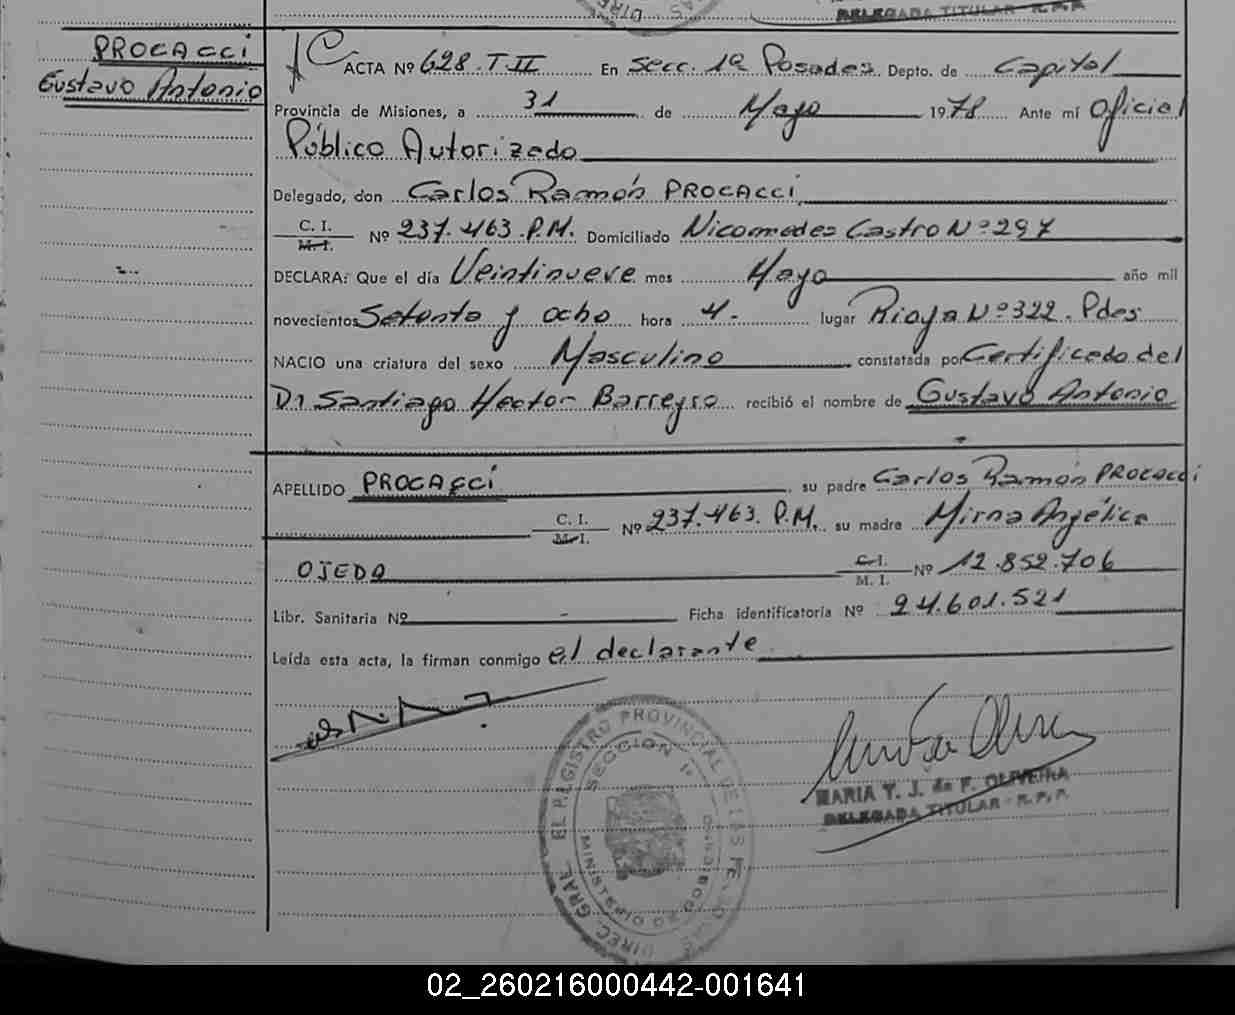 DELEGADA TITULAR - R.P.P.
PROCACCI
Gustavo Antonio
ACTA Nº 628. T. II En Secc. 1ª Posadas Depto. de Capital
Provincia de Misiones, a 31 de Mayo 1978 Ante mí Oficial
Público Autorizado
Delegado, don Carlos Ramón PROCACCI
C. I. / M. I. Nº 237.463 P.M. Domiciliado Nicomedes Castro Nº 297
DECLARA: Que el día Veintinueve mes Mayo año mil
novecientos Setenta y ocho hora 4.- lugar Rioja Nº 322. Pdas
NACIO una criatura del sexo Masculino constatada por Certificado del
Dr Santiago Hector Barreyro recibió el nombre de Gustavo Antonio
APELLIDO PROCACCI su padre Carlos Ramón PROCACCI
C. I. / M. I. Nº 237.463. P.M. su madre Mirna Angélica
OJEDA C. I. / M. I. Nº 12.852.706
Libr. Sanitaria Nº - Ficha identificatoria Nº 24.601.521
Leída esta acta, la firman conmigo el declarante
MARIA Y. J. de F. OLIVEIRA
DELEGADA TITULAR - R.P.P.
DIREC. GRAL. EL REGISTRO PROVINCIAL DE LAS PERSONAS
SECCION 1ª
MINISTERIO DE GOBIERNO
02_260216000442-001641